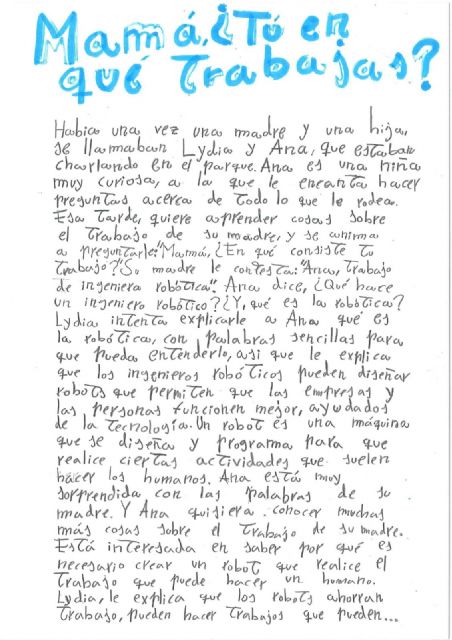 Mamá, ¿Tú en
qué trabajas?
Había una vez una madre y una hija,
se llamaban Lydia y Ana, que estaban
charlando en el parque. Ana es una niña
muy curiosa, a la que le encanta hacer
preguntas acerca de todo lo que le rodea.
Esa tarde, quiere aprender cosas sobre
el trabajo de su madre, y se anima
a preguntarle: "Mamá, ¿En qué consiste tu
trabajo?" Su madre le contesta: "Ana, trabajo
de ingeniera robótica". Ana dice, ¿Qué hace
un ingeniero robótico? ¿Y, qué es la robótica?
Lydia intenta explicarle a Ana qué es
la robótica, con palabras sencillas para
que pueda entenderlo, asi que le explica
que los ingenieros robóticos pueden diseñar
robots que permiten que las empresas y
las personas funcionen mejor, ayudados
de la tecnología. Un robot es una máquina
que se diseña y programa para que
realice ciertas actividades que suelen
hacer los humanos. Ana está muy
sorprendida con las palabras de su
madre. Y Ana quisiera conocer muchas
más cosas sobre el trabajo de su madre.
Está interesada en saber por qué es
necesario crear un robot que realice el
trabajo que puede hacer un humano.
Lydia, le explica que los robots ahorran
trabajo, pueden hacer trabajos que pueden...